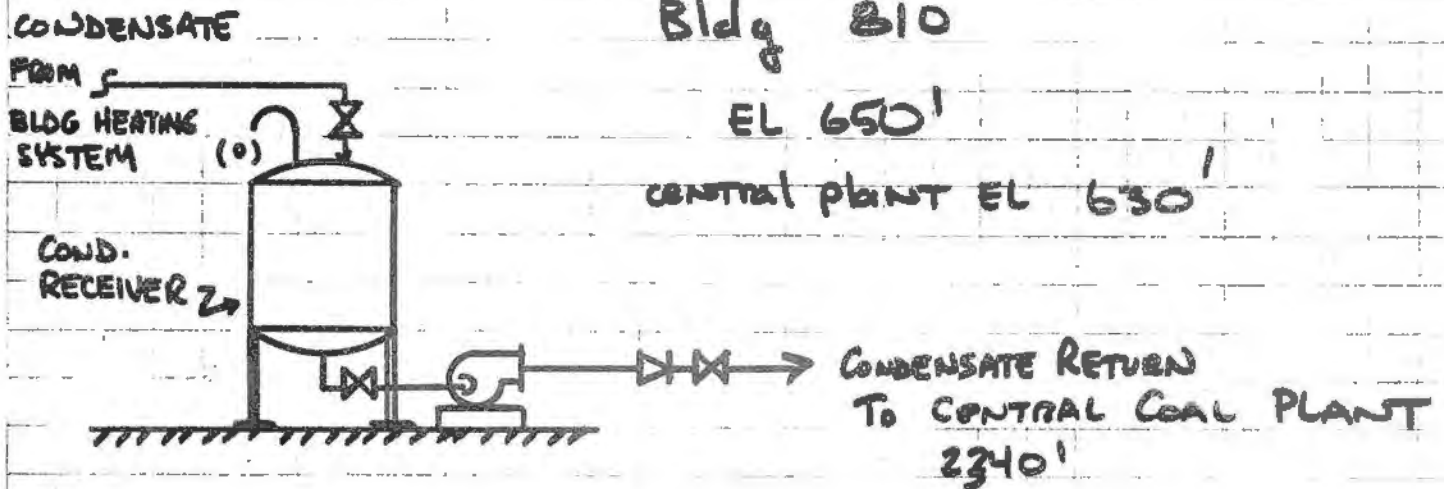 CONDENSATE
FROM
BLDG HEATING
SYSTEM
(0)
COND.
RECEIVER
Bldg 810
EL 650'
central plant EL 630'
CONDENSATE RETURN
TO CENTRAL COAL PLANT
2340'